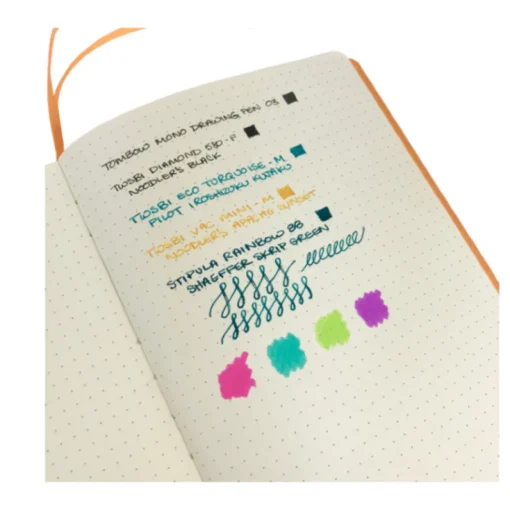 TOMBOW MONO DRAWING PEN 03
TWSBI DIAMOND 580 - F
NOODLER'S BLACK
TWSBI ECO TURQUOISE - M
PILOT IROSHIZUKU KUJAKU
TWSBI VAC MINI - M
NOODLER'S APACHE SUNSET
STIPULA RAINBOW BB
SHAEFFER SKRIP GREEN